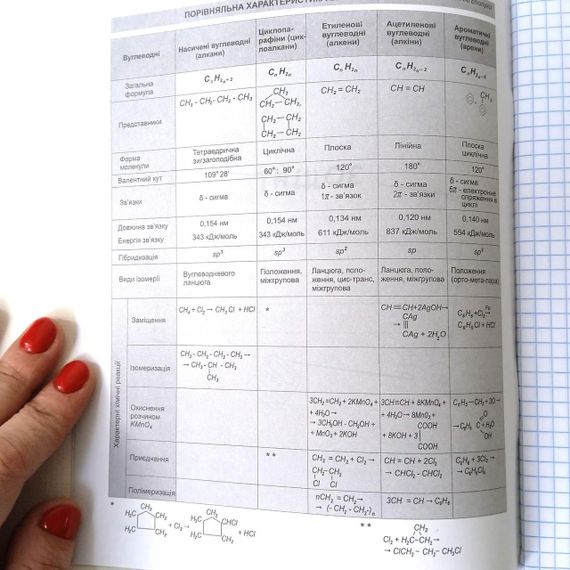 ПОРІВНЯЛЬНА ХАРАКТЕРИСТИКА
сполуки
Вуглеводні
Насичені вуглеводні (алкани)
Циклопа-
рафіни (цик-
лоалкани)
Етиленові
вуглеводні
(алкени)
Ацетиленові
вуглеводні
(алкіни)
Ароматичні
вуглеводні
(арени)
Загальна
формула
CnH2n+2
CnH2n
CnH2n
CnH2n-2
CnH2n-6
Представники
CH3 - CH2- CH2 - CH3
CH2
CH2—CH2,
CH2—CH2
CH2—CH2
CH2 = CH2
CH ≡ CH
CH3
Форма
молекули
Тетраедрична
зигзагоподібна
Циклічна
Плоска
Лінійна
Плоска
циклічна
Валентний кут
109° 28'
60°; 90°
120°
180°
120°
Зв'язки
δ - сигма
δ - сигма
δ - сигма
1π - зв'язок
δ - сигма
2π - зв'язки
δ - сигма
6π - електронне
спряження в
циклі
Довжина зв'язку
0,154 нм
0,154 нм
0,134 нм
0,120 нм
0,140 нм
Енергія зв'язку
343 кДж/моль
343 кДж/моль
611 кДж/моль
837 кДж/моль
554 кДж/моль
Гібридизація
sp³
sp³
sp²
sp
Види ізомерії
Вуглеводневого
ланцюга
Положення,
міжгрупова
Ланцюга, поло-
ження, цис-транс,
міжгрупова
Ланцюга, поло-
ження, міжгрупова
Положення
(орто-мета-пара)
Характерні хімічні реакції
Заміщення
CH4 + Cl2 → CH3Cl + HCl
*
CH≡CH+2AgOH→
CAg
→ |||
CAg + 2H2O
C6H6+Cl2→
C6H5Cl + HCl
Ізомеризація
CH3 - CH2 - CH2 - CH3 →
→ CH3 - CH - CH3
CH3
Окиснення
розчином
KMnO4
3CH2=CH2 + 2KMnO4 +
+ 4H2O →
→ 3CH2OH - CH2OH +
+ MnO2 + 2KOH
3CH≡CH + 8KMnO4 +
+ 4H2O→ 8MnO2 +
COOH
+ 8KOH + 3
COOH
C6H5 — CH3 + 3O→
O
→C6H5 C + H2O
OH
Приєднання
**
CH2 = CH2 + Cl2 →
CH2-CH2
Cl Cl
CH ≡ CH + 2Cl2
→ CHCl2 - CHCl2
C6H6 + 3Cl2 →
→ C6H6Cl6
Полімеризація
nCH2 = CH2→
→ (- CH2 - CH2-)n
3CH ≡ CH → C6H6
*
CH2
H2C
CH2
H2C
CH2
+ Cl2 →
CH2
H2C
CHCl
H2C
CH2
+ HCl
**
CH2
Cl2 + H2C–CH2→
→ ClCH2 – CH2 – CH2Cl